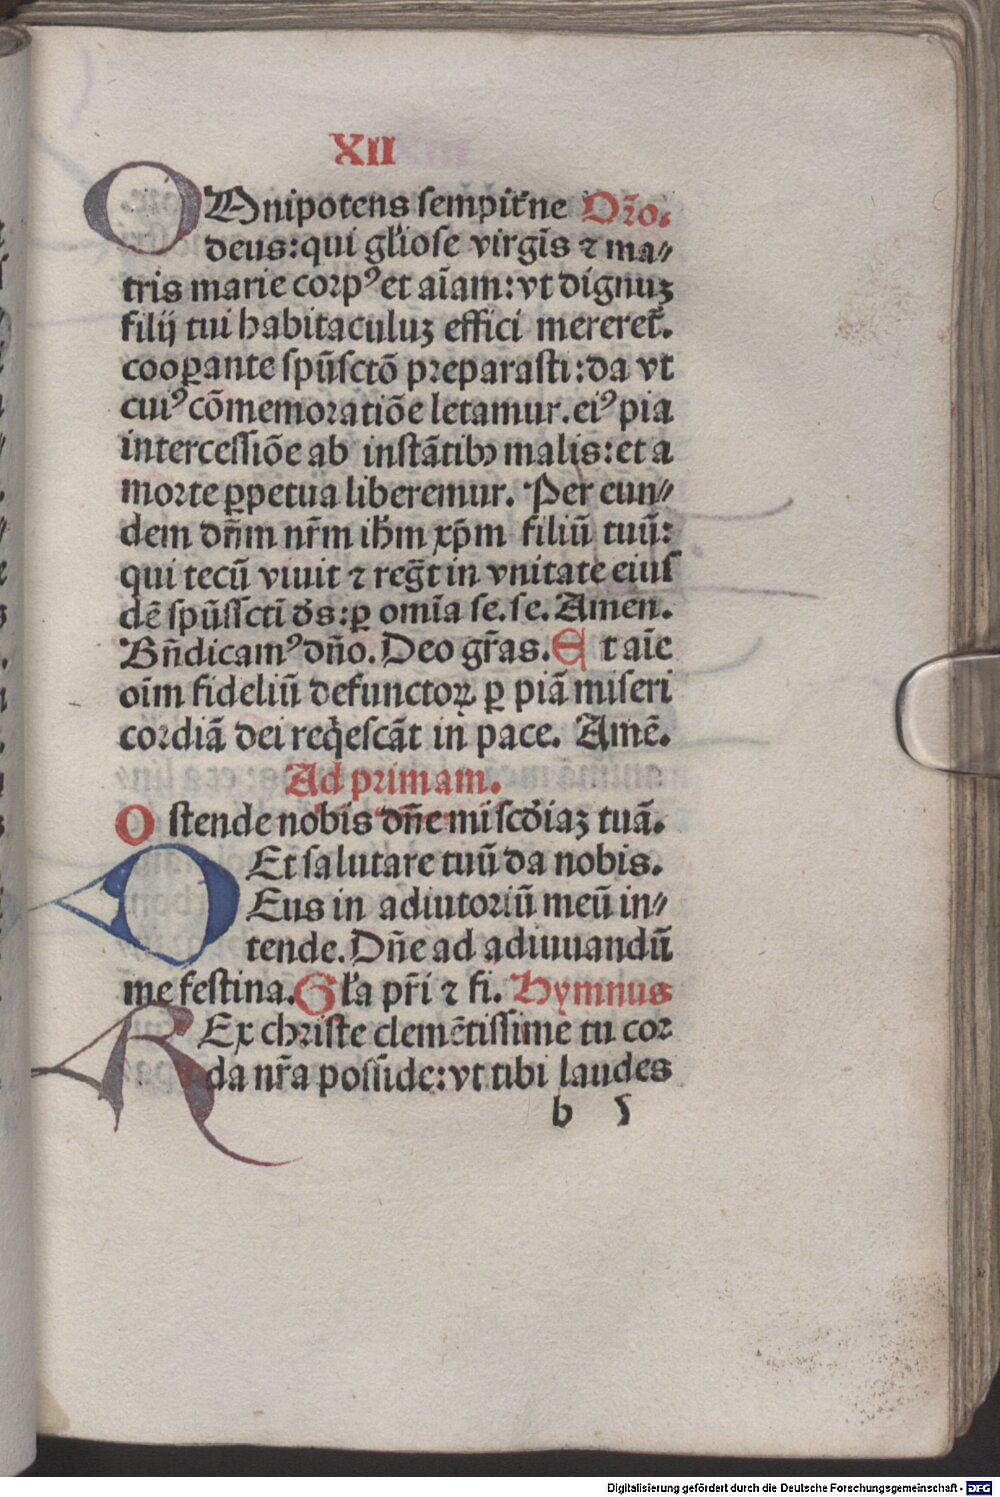 XII
OMnipotens sempit̃ne Oro.
deus: qui gl'iose virgīs ⁊ ma⸗
tris marie corpꝰ et aīam: vt dignuꝫ
filij tui habitaculuꝫ effici mereret̃.
cooꝑante spūsctō preparasti: da vt
cuiꝰ cōmemoratiōe letamur. eiꝰ pia
intercessiōe ab instātibꝰ malis: et a
morte ꝑpetua liberemur. Per eun⸗
dem dn̄m nr̄m ih̄m xp̄m filiū tuū:
qui tecū viuit ⁊ regn̄t in vnitate eius
dē spūsscti d̄s: ꝑ omīa se. se. Amen.
Bn̄dicamꝰ dn̄o. Deo gr̄as. Et aīe
oīm fideliū defunctoꝝ ꝑ piā miseri
cordiā dei reqͥescāt in pace. Amē.
Ad primam.
Ostende nobis dn̄e miscd̄iaꝫ tuā.
Et salutare tuū da nobis.
DEus in adiutoriū meū in⸗
tende. Dn̄e ad adiuuandū
me festina. Gl'a pr̄i ⁊ fi. Hymnus
REx christe clemētissime tu cor
da nr̄a posside: vt tibi laudes
b 5
Digitalisierung gefördert durch die Deutsche Forschungsgemeinschaft - DFG